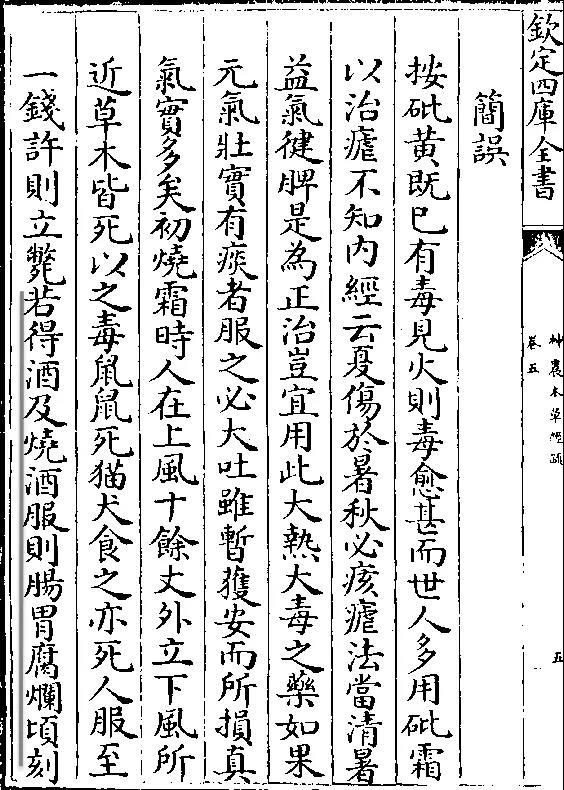 欽定四庫全書
神農本草經疏
卷五
五
簡誤
按砒黄既已有毒見火則毒愈甚而世人多用砒霜
以治瘧不知内經云夏傷於暑秋必痎瘧法當清暑
益氣健脾是為正治豈宜用此大熱大毒之藥如果
元氣壯實有痰者服之必大吐雖暫獲安而所損真
氣實多矣初燒霜時人在上風十餘丈外立下風所
近草木皆死以之毒鼠鼠死猫犬食之亦死人服至
一錢許則立斃若得酒及燒酒服則腸胃腐爛頃刻